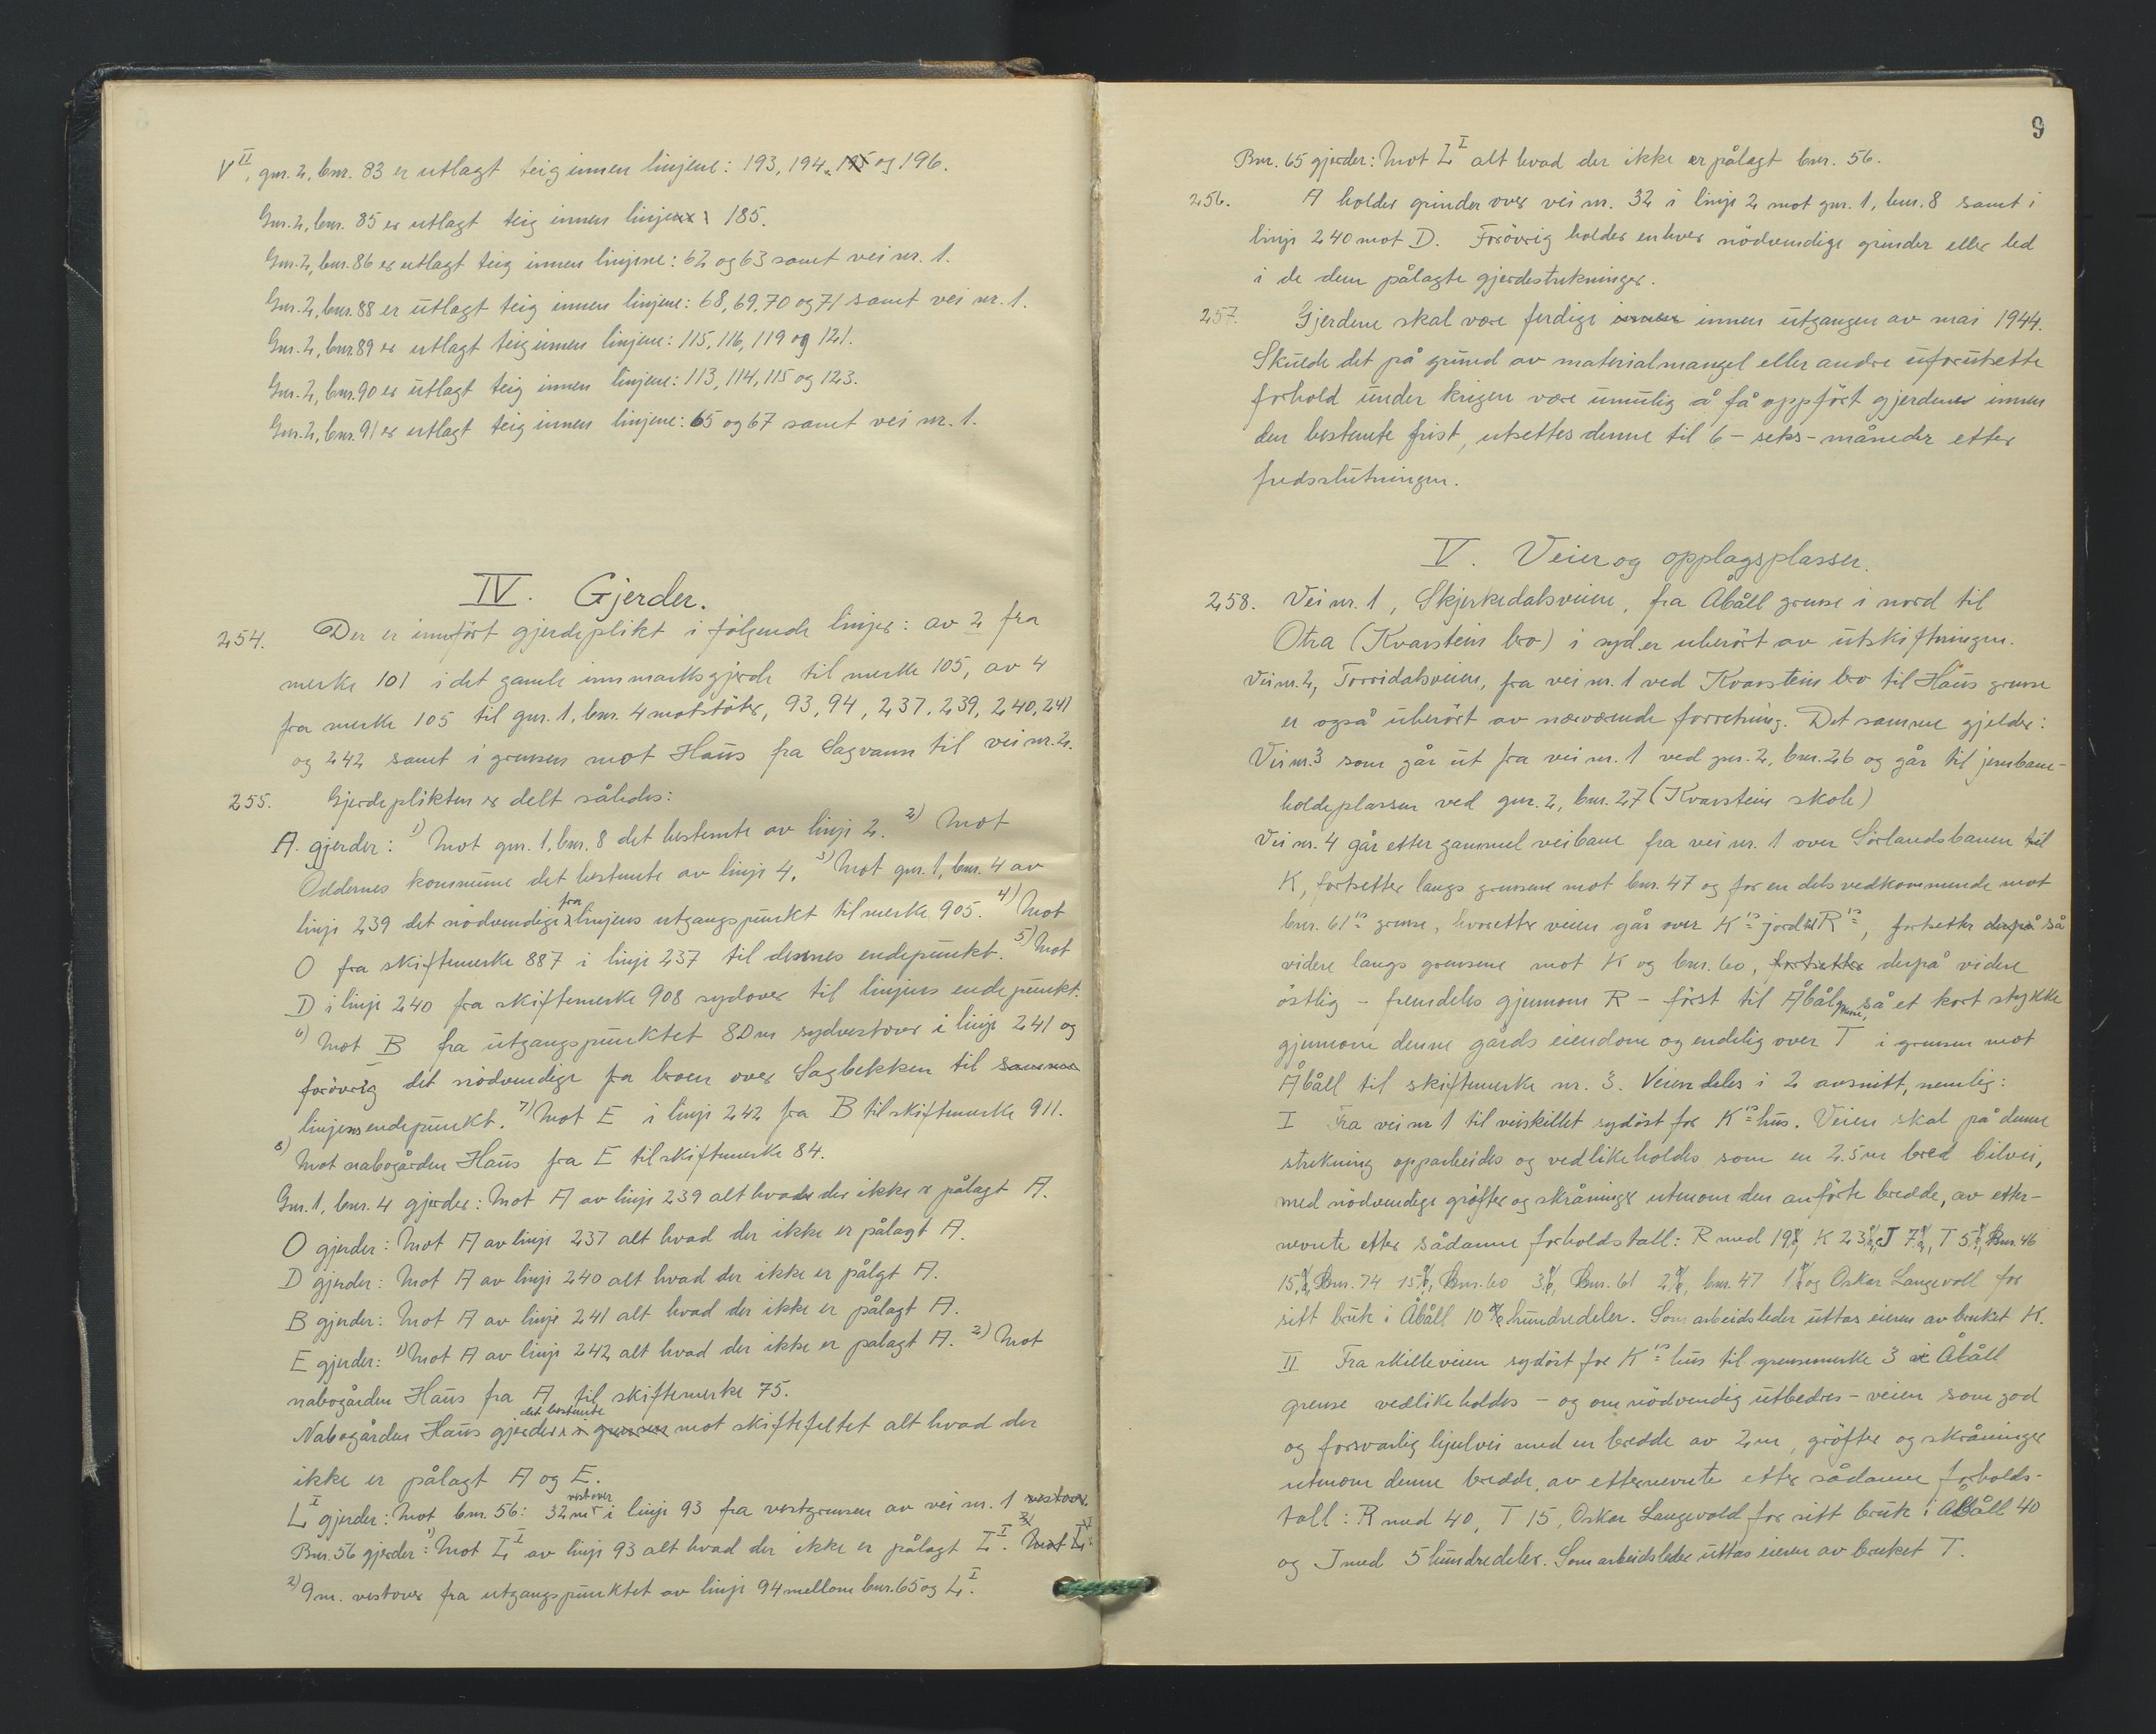 V II, gnr. 2, bnr. 83 er utlagt teig innen linjene: 193, 194, 195 og 196.
Gnr. 2, bnr. 85 er utlagt teig innen linje 185.
Gnr. 2, bnr. 86 er utlagt teig innen linjene: 62 og 63 samt vei nr. 1.
Gnr. 2, bnr. 88 er utlagt teig innen linjene: 68, 69, 70 og 71 samt vei nr. 1.
Gnr. 2, bnr. 89 er utlagt teig innen linjene: 115, 116, 119 og 121.
Gnr. 2, bnr. 90 er utlagt teig innen linjene: 113, 114, 115 og 123.
Gnr. 2, bnr. 91 er utlagt teig innen linjene: 65 og 67 samt vei nr. 1.
IV. Gjerder.
254. Der er innført gjerdeplikt i følgende linjer: av 2 fra
merke 101 i det gamle innmarksgjerde til merke 105, av 4
fra merke 105 til gnr. 1, bnr. 4 motstøter, 93, 94, 237, 239, 240, 241
og 242 samt i grensen mot Haus fra Sagvann til vei nr. 2.
255. Gjerdeplikten er delt således:
A. gjerder: 1) Mot gnr. 1, bnr. 8 det bestemte av linje 2. 2) Mot
Oddernes kommune det bestemte av linje 4. 3) Mot gnr. 1, bnr. 4 av
linje 239 det nødvendige fra linjens utgangspunkt til merke 905. 4) Mot
O fra skiftemerke 887 i linje 237 til dennes endepunkt. 5) Mot
D i linje 240 fra skiftemerke 908 sydover til linjens endepunkt.
6) Mot B fra utgangspunktet 80 m sydvestover i linje 241 og
forøvrig det nødvendige fra broen over Sagbekken til samme
linjens endepunkt. 7) Mot E i linje 242 fra B til skiftemerke 911.
8) Mot nabogården Haus fra E til skiftemerke 84.
Gnr. 1, bnr. 4 gjerder: Mot A av linje 239 alt hvad der ikke er pålagt A.
O gjerder: Mot A av linje 237 alt hvad der ikke er pålagt A.
D gjerder: Mot A av linje 240 alt hvad der ikke er pålagt A.
B gjerder: Mot A av linje 241 alt hvad der ikke er pålagt A.
E gjerder: 1) Mot A av linje 242 alt hvad der ikke er pålagt A. 2) Mot
nabogården Haus fra A til skiftemerke 75.
Nabogården Haus gjerder det bestemte i grensen mot skiftefeltet alt hvad der
ikke er pålagt A og E.
L I gjerder: Mot bnr. 56: 32 m vestover i linje 93 fra vestgrensen av vei nr. 1 vestover.
Bnr. 56 gjerder: 1) Mot L I av linje 93 alt hvad der ikke er pålagt L I. 2) Mot L I:
2) 9 m. vestover fra utgangspunktet av linje 94 mellom bnr. 65 og L I.
9
Bnr. 65 gjerder: Mot L I alt hvad der ikke er pålagt bnr. 56.
256. A holder grinder over vei nr. 32 i linje 2 mot gnr. 1, bnr. 8 samt i
linje 240 mot D. Forøvrig holder enhver nödvendige grinder eller led
i de dem pålagte gjerdestrekninger.
257. Gjerdene skal være ferdige innen innen utgangen av mai 1944.
Skulde det på grund av materialmangel eller andre uforutsette
forhold under krigen være umulig å få oppført gjerdene innen
den bestemte frist, utsettes denne til 6 - seks - måneder etter
fredsslutningen.
V. Veier og opplagsplasser.
258. Vei nr. 1, Skjerkedalsveien, fra Åbåll grense i nord til
Otra (Kvarstein bro) i syd, er uberørt av utskiftningen.
Vei nr. 2, Torridalsveien, fra vei nr. 1 ved Kvarstein bro til Haus grense
er også uberørt av nærværende forretning. Det samme gjelder:
Vei nr. 3 som går ut fra vei nr. 1 ved gnr. 2, bnr. 26 og går til jernbane-
holdeplassen ved gnr. 2, bnr. 27 (Kvarstein skole)
Vei nr. 4 går etter gammel veibane fra vei nr. 1 over Sørlandsbanen til
K, fortsetter langs grensene mot bnr. 47 og for en dels vedkommende mot
bnr. 61's grense, hvoretter veien går over K's jord til R's, fortsetter derpå så
videre langs grensene mot K og bnr. 60, fortsetter derpå videre
østlig - fremdeles gjennom R - først til Åbål grense, så et kort stykke
gjennom denne gårds eiendom og endelig over T i grensen mot
Åbåll til skiftemerke nr. 3. Veien deles i 2 avsnitt, nemlig:
I Fra vei nr 1 til veiskillet sydøst for K's hus. Veien skal på denne
strekning opparbeides og vedlikeholdes som en 2.5 m bred bilvei,
med nødvendige grøfter og skråninger utenom den anførte bredde, av etter-
nevnte etter sådanne forholdstall: R med 19, K 23, J 7, T 5, Bnr. 46
15, Bnr. 74 15, Bnr. 60 3, Bnr. 61 2, bnr. 47 1 og Oskar Langevoll for
sitt bruk i Åbåll 10 hundredeler. Som arbeidsleder uttas eieren av bruket K.
II Fra skilleveien sydøst for K's hus til grensemerke 3 i Åbåll
grense vedlikeholdes - og om nødvendig utbedres - veien som god
og forsvarlig hjulvei med en bredde av 2 m, grøfter og skråninger
utenom denne bredde, av etternevnte etter sådanne forholds-
tall: R med 40, T 15, Oskar Langevold for sitt bruk i Åbåll 40
og J med 5 hundredeler. Som arbeidsleder uttas eieren av bruket T.